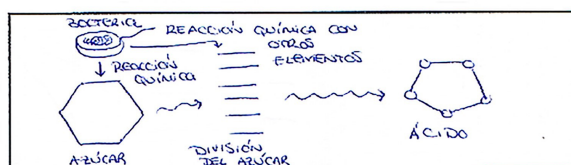 BACTERIA
REACCIÓN QUÍMICA CON
OTROS
ELEMENTOS
REACCIÓN
QUÍMICA
AZÚCAR
DIVISIÓN
DEL AZÚCAR
ÁCIDO